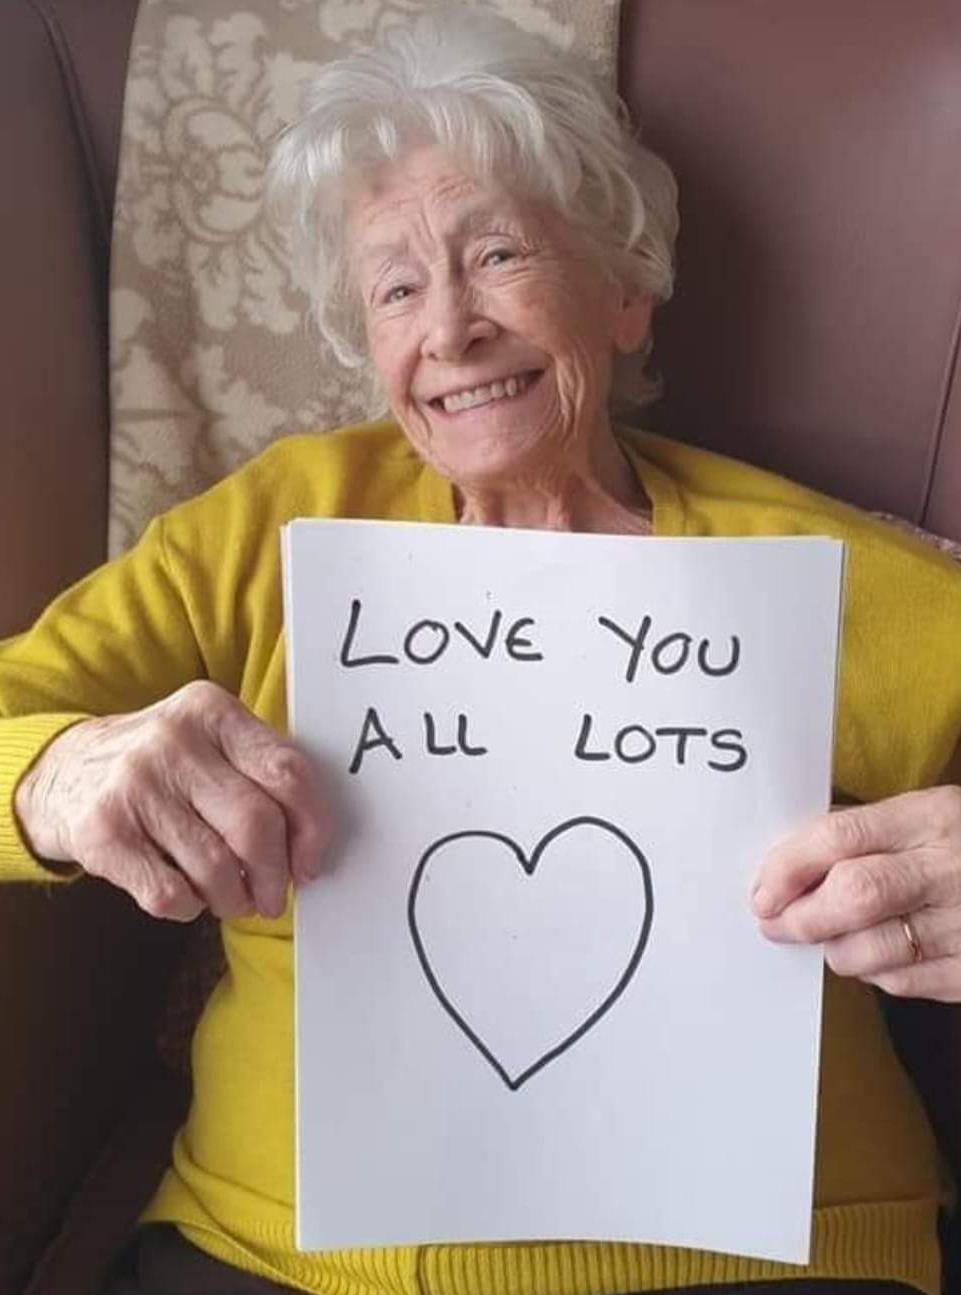 LOVE YOU
ALL LOTS